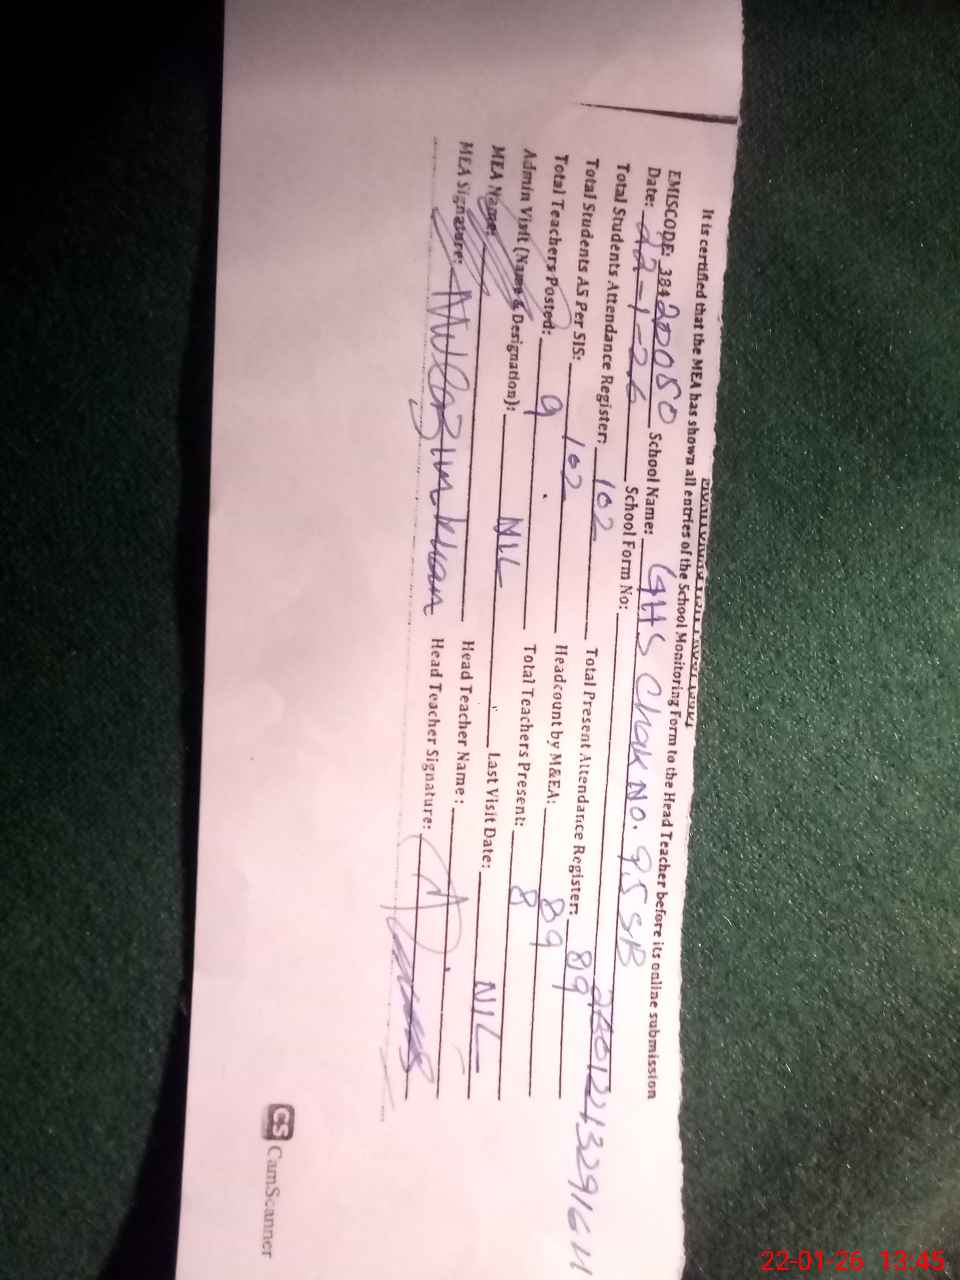 It is certified that the MEA has shown all entries of the School Monitoring Form to the Head Teacher before its online submission
EMISCODE: 38420050 School Name: GHS Chak No. 95 SB
Date: 22-1-26 School Form No:
Total Students Attendance Register: 102 Total Present Attendance Register: 89
Total Students AS Per SIS: 102 Headcount by M&EA: 89
Total Teachers Posted: 9 Total Teachers Present: 8
Admin Visit (Name & Designation): NIL Last Visit Date: NIL
MEA Name: Head Teacher Name:
MEA Signature: Head Teacher Signature:
CS CamScanner
22-01-26 13:45